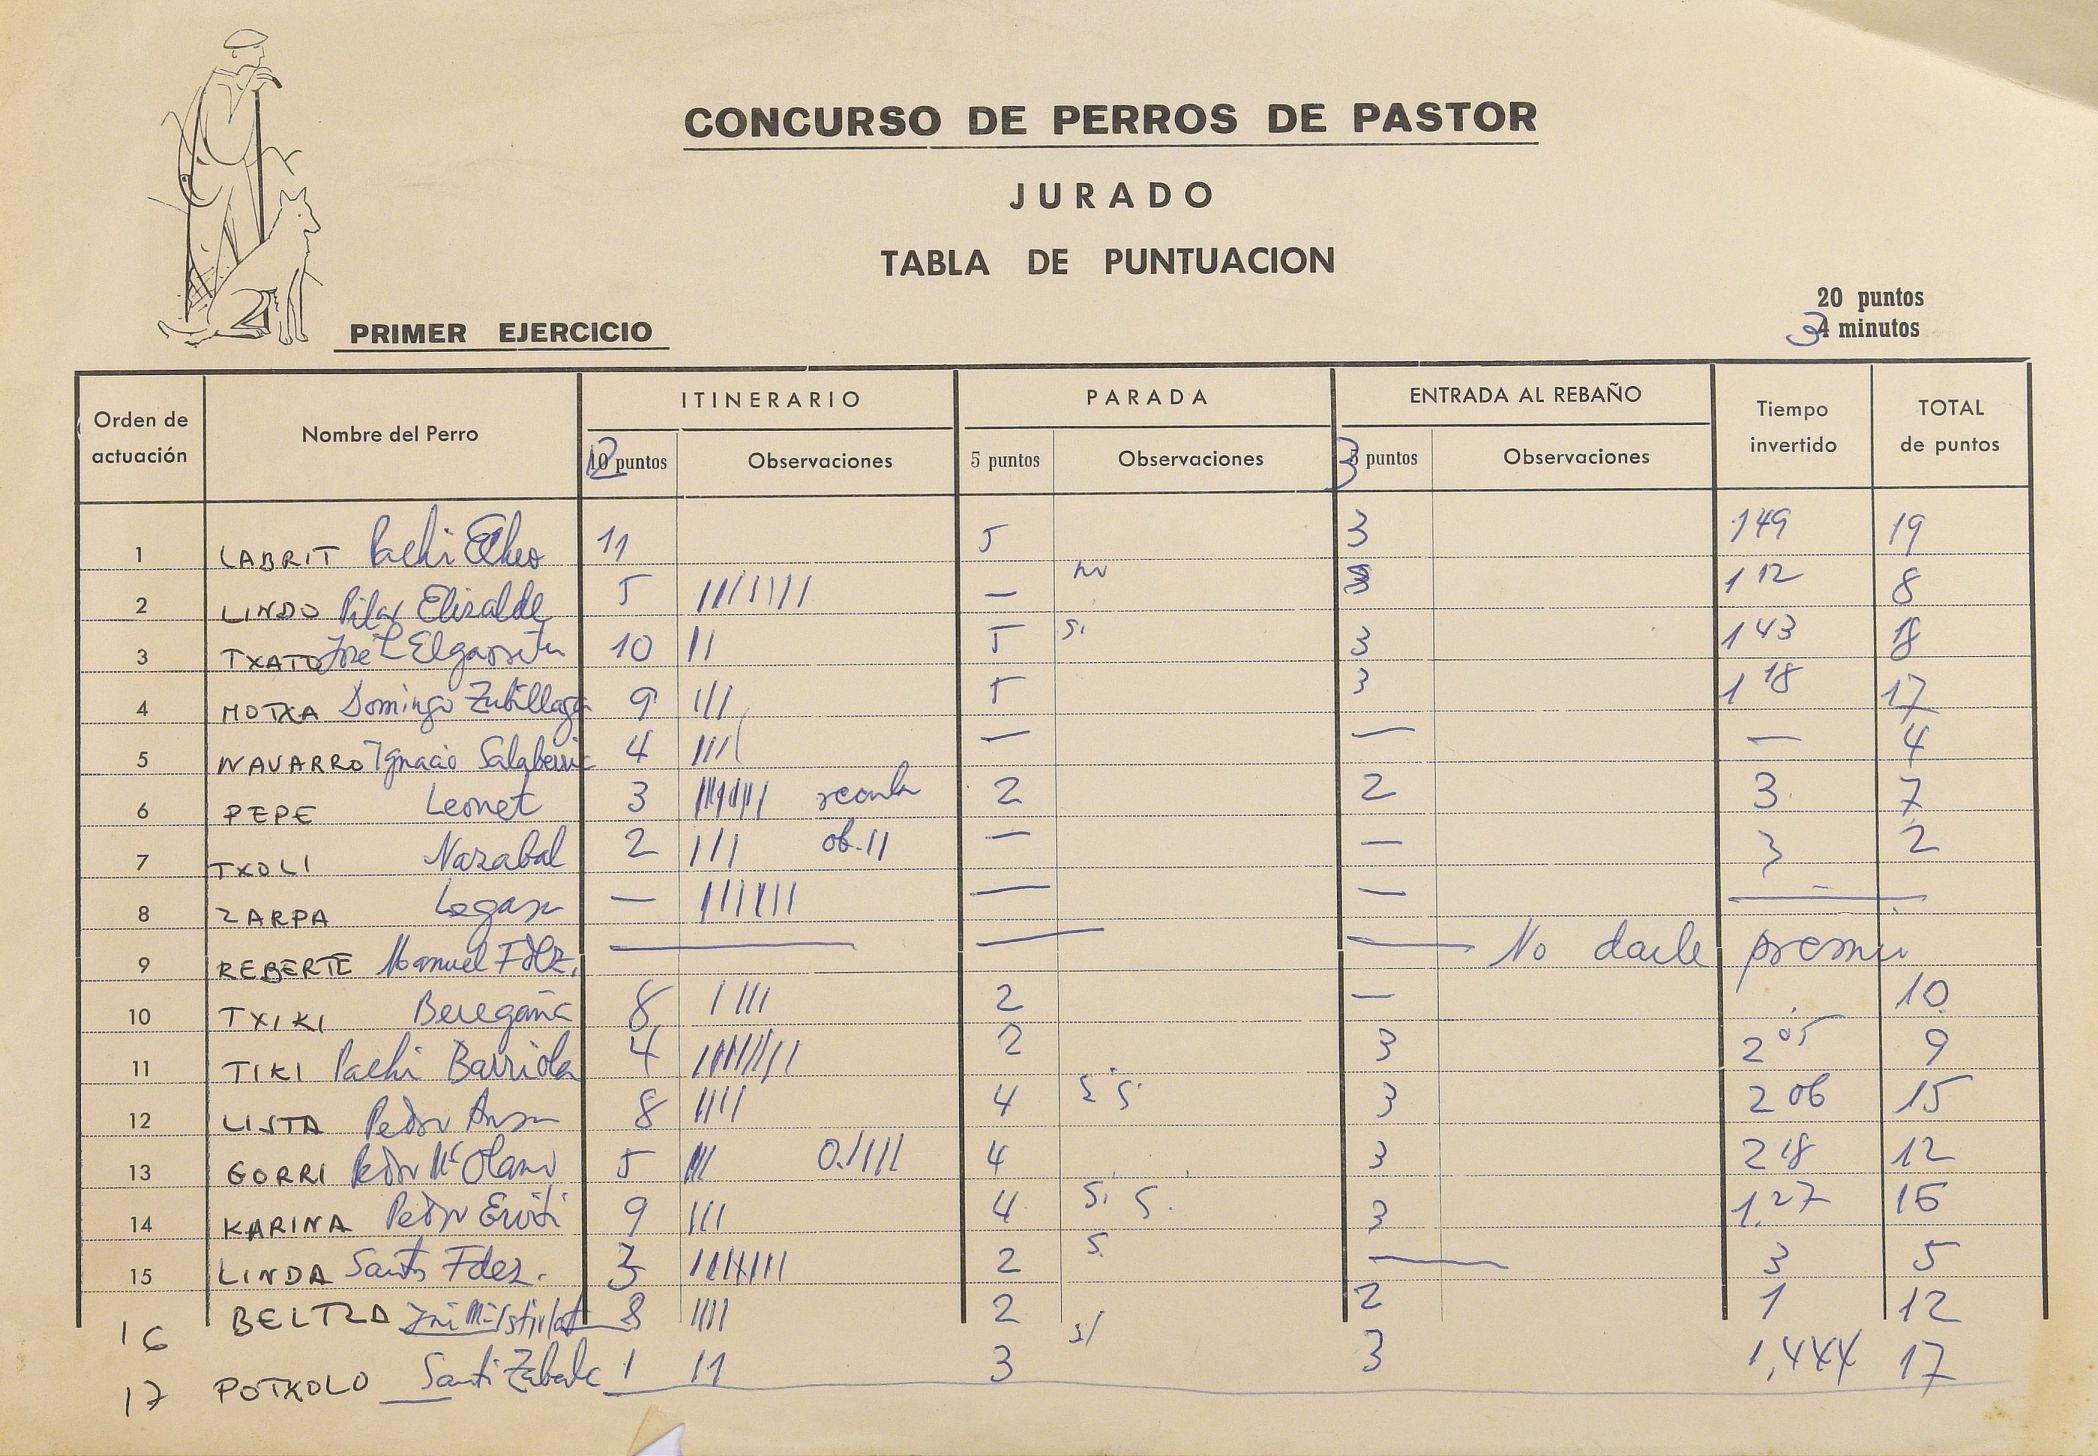 CONCURSO DE PERROS DE PASTOR
JURADO
TABLA DE PUNTUACION
20 puntos
PRIMER EJERCICIO 3 4 minutos
Orden de actuación Nombre del Perro ITINERARIO PARADA ENTRADA AL REBAÑO Tiempo invertido TOTAL de puntos
12 puntos Observaciones 5 puntos Observaciones 3 puntos Observaciones
1 LABRIT Pachi 11 5 3 1 49 19
2 LINDO Pilar Elizalde 5 //////// — no 3 1 12 8
3 TXATO José L Elgarresta 10 // 5 si 3 1 43 18
4 MOTXA Domingo Zubillaga 9 /// 5 3 1 18 17
5 NAVARRO Ignacio Salaberria 4 //// — — — 4
6 PEPE Leonet 3 //////// 2 2 3 7
7 TXOLI Nazabal 2 /// ob. // — — 3 2
8 ZARPA Legasa — ////// — — —
9 REBERTE Manuel Fdez. — — — No darle premio
10 TXIKI Beregaña 8 //// 2 — 10
11 TIKI Pachi Barriola 4 //////// 2 3 2 05 9
12 LISTA Pedro 8 //// 4 S. S. 3 2 06 15
13 GORRI Pedro Mª Olano 5 /// O. //// 4 3 2 18 12
14 KARINA Pedro 9 /// 4 Si S. 3 1.27 16
15 LINDA Santos Fdez. 3 /////// 2 S. — 3 5
16 BELTZA 8 //// 2 2 1 12
17 POTXOLO Santi Zabala 11 3 s/ 3 1,44 17